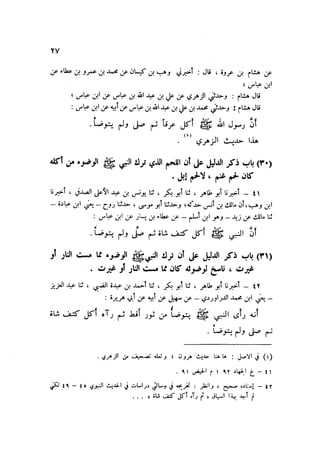 ٢٧
عن هشام بن عروة ، قال : أخبرني وهب بن كيسان عن محمد بن عمرو بن عطاء عن
ابن عباس ؛
قال هشام : وحدثني الزهري عن علي بن عبد الله بن عباس عن ابن عباس ؛
قال هشام : وحدثني محمد بن علي بن عبد الله بن عباس عن أبيه عن ابن عباس :
أنَّ رسول الله ﷺ أكل عرقاً ثم صلى ولم يتوضأ .
هذا حديث الزهري (١) .
(٣٠) باب ذكر الدليل على أن اللحم الذي ترك النبي ﷺ الوضوء من أكله
كان لحم غنم ، لا لحم إبل .
٤١ — أخبرنا أبو طاهر ، ثنا أبو بكر ، ثنا يونس بن عبد الأعلى الصدفي ، أخبرنا
ابن وهب، أن مالك بن أنس حدثه؛ وحدثنا أبو موسى ، حدثنا روح — يعني ابن عبادة —
ثنا مالك عن زيد — وهو ابن أسلم — عن عطاء بن يسار عن ابن عباس :
أن النبي ﷺ أكل كتف شاة ثم صلَّى ولم يتوضأ .
(٣١) باب ذكر الدليل على أن ترك النبي ﷺ الوضوء مما مست النار أو
غيرت ، ناسخ لوضوئه كان مما مست النار أو غيرت .
٤٢ — أخبرنا أبو طاهر ، ثنا أبو بكر ، ثنا أحمد بن عبدة الضبي ، ثنا عبد العزيز
— يعني ابن محمد الدراوردي — عن سهيل عن أبيه عن أبي هريرة :
أنه رأى النبي ﷺ يتوضأ من ثور أقط ثم رآه أكل كتف شاة
ثم صلى ولم يتوضأ .
(١) في الأصل : ها هنا حديث هرون ؛ ولعله تصحيف من الزهري .
٤١ — خ الجهاد ٩٢ ؛ م الحيض ٩١ .
٤٢ — إسناده صحيح ، وانظر : تخريجه في رسالتي دراسات في الحديث النبوي ٤٥ — ٤٩ لكني
لم أجد بهذا السياق ، ثم رآه أكل كتف شاة ، . . .